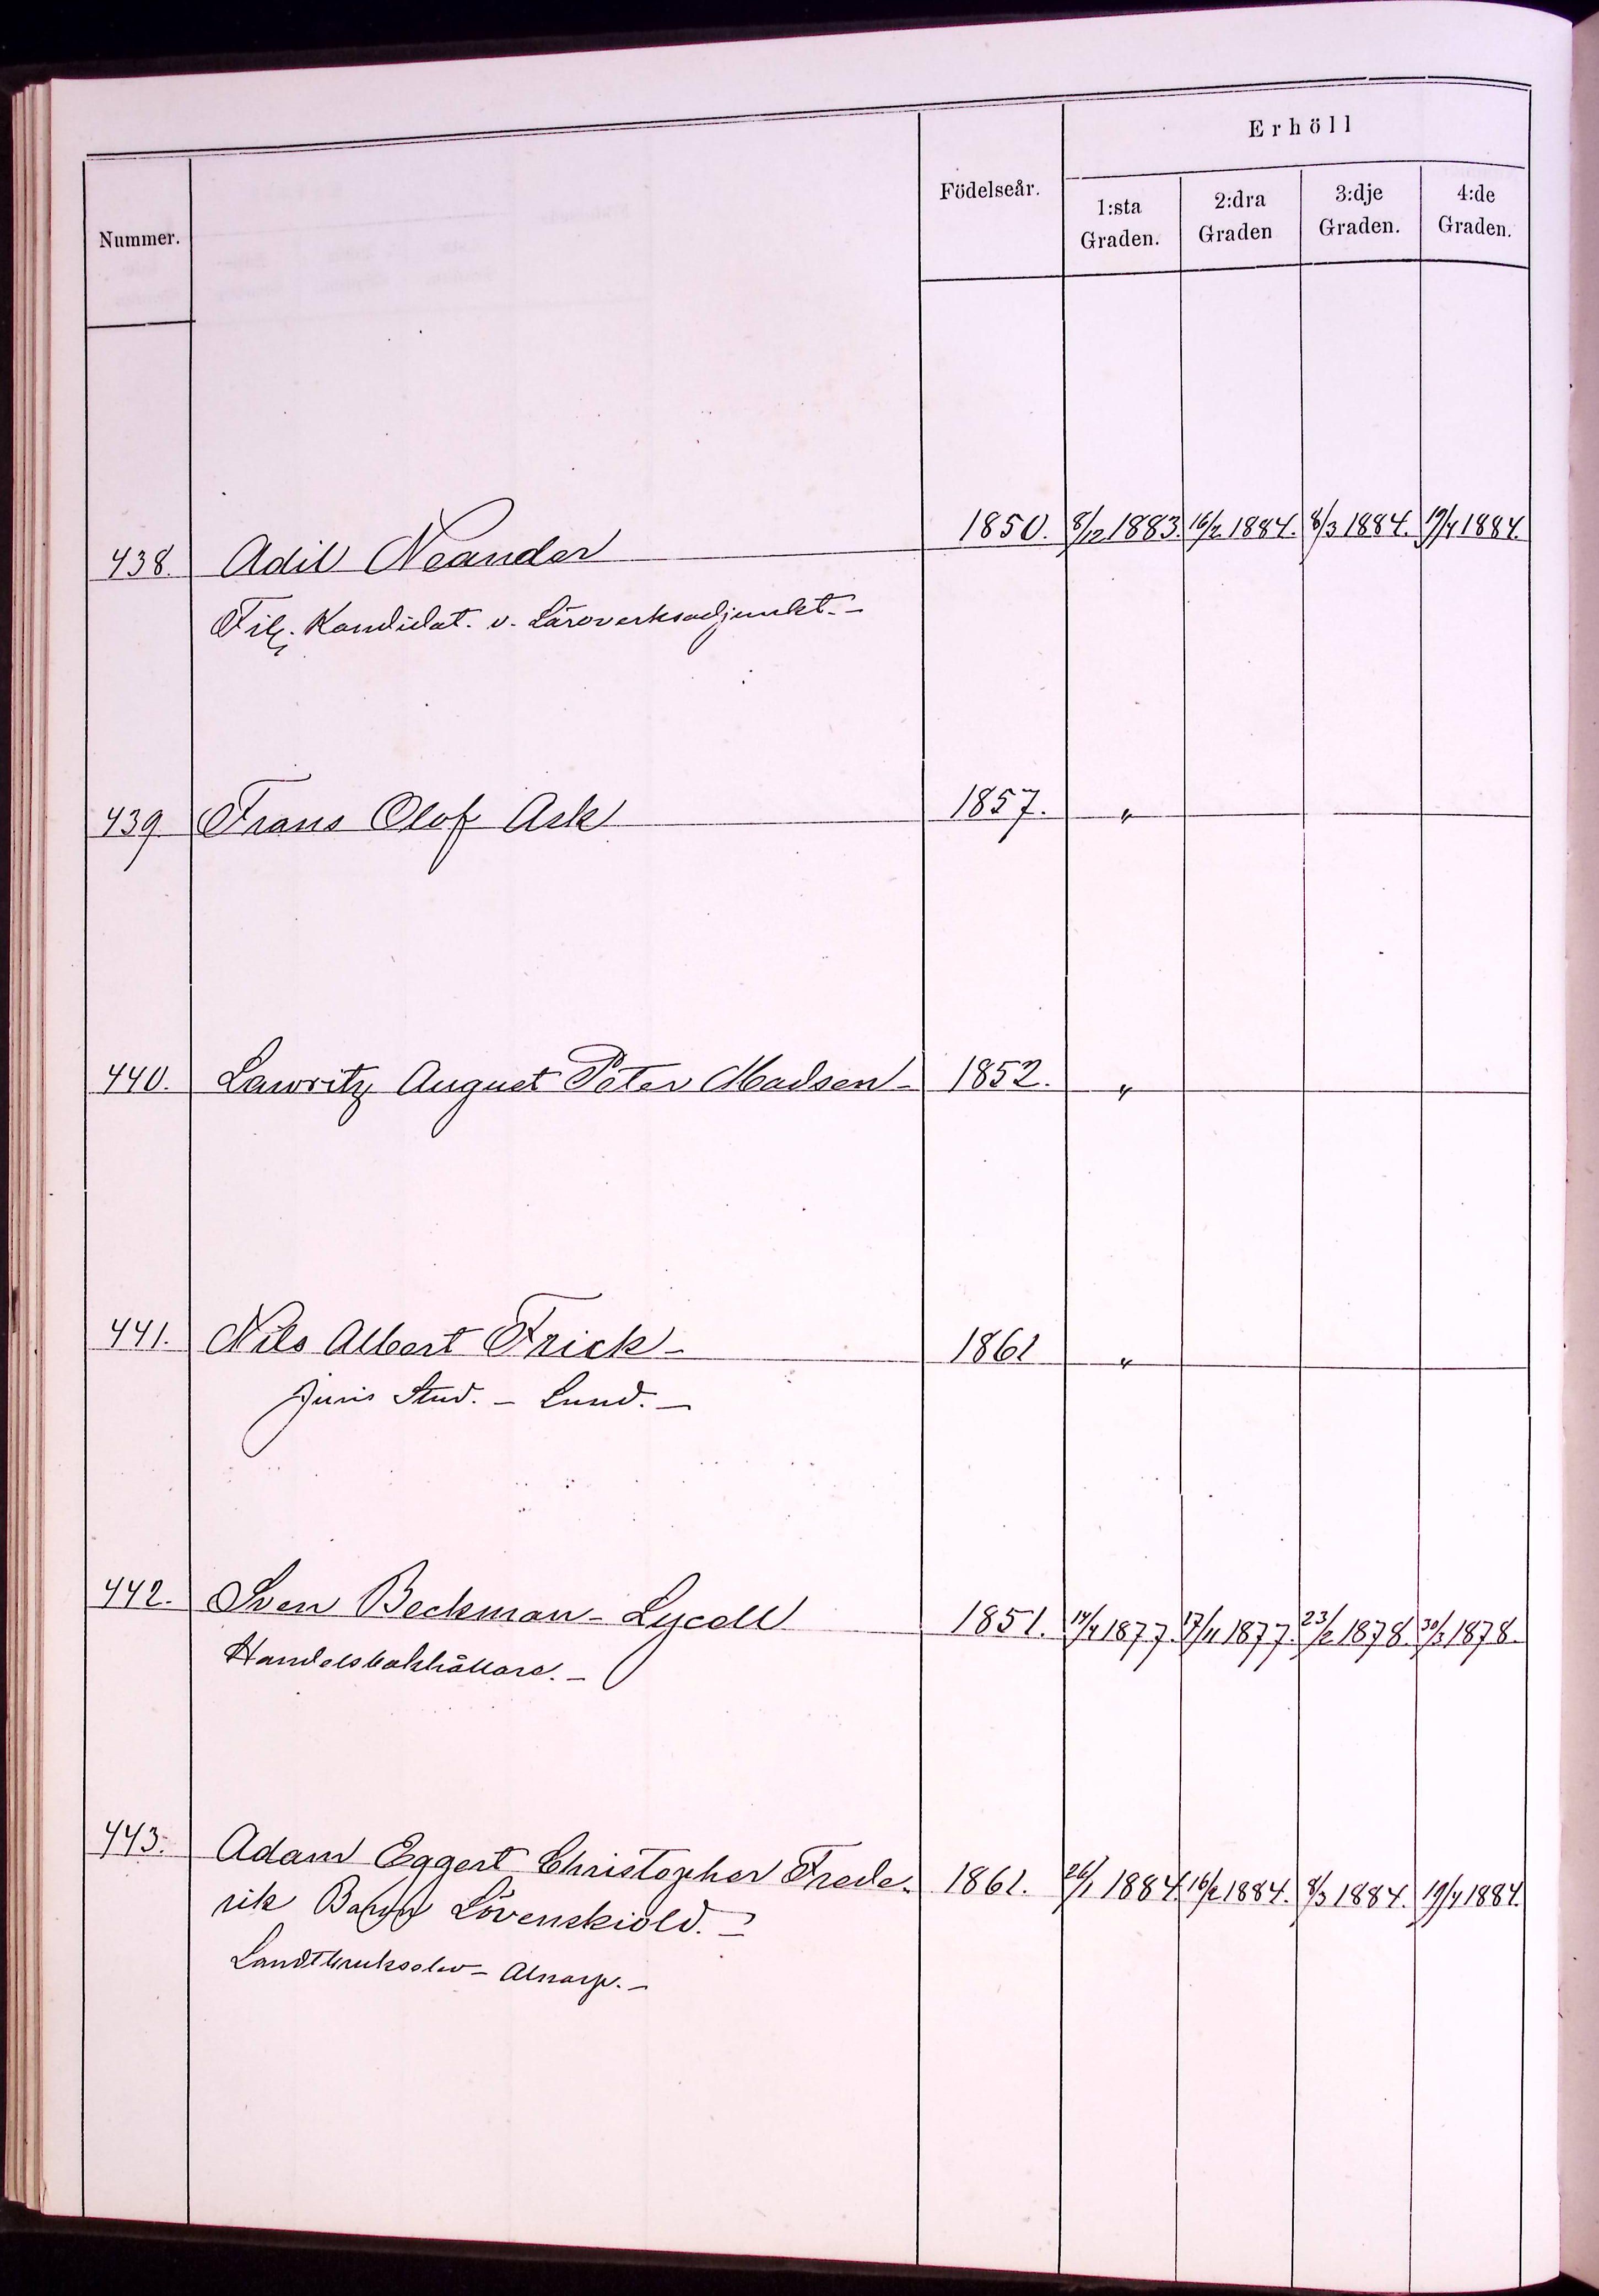 Erhöll
Nummer. Födelseår. 1:sta Graden. 2:dra Graden 3:dje Graden. 4:de Graden.
438. Adil Neander 1850. 8/12 1883. 16/2 1884. 8/3 1884. 19/4 1884.
Fil. Kandidat. v. Läroverksadjunkt. -
439 Frans Olof Ask 1857. "
440. Lawritz August Peter Madsen - 1852. "
441. Nils Albert Frick - 1861 "
Juris Stud. - Lund. -
442. Sven Beckman - Lycell 1851. 14/4 1877. 17/11 1877. 23/2 1878. 30/3 1878.
Handelsbokhållare. -
443. Adam Eggert Christopher Frede- 1861. 26/1 1884 16/2 1884. 8/3 1884. 19/4 1884.
rik Løvenskiold. -
Landtbrukselev - Alnarp. -